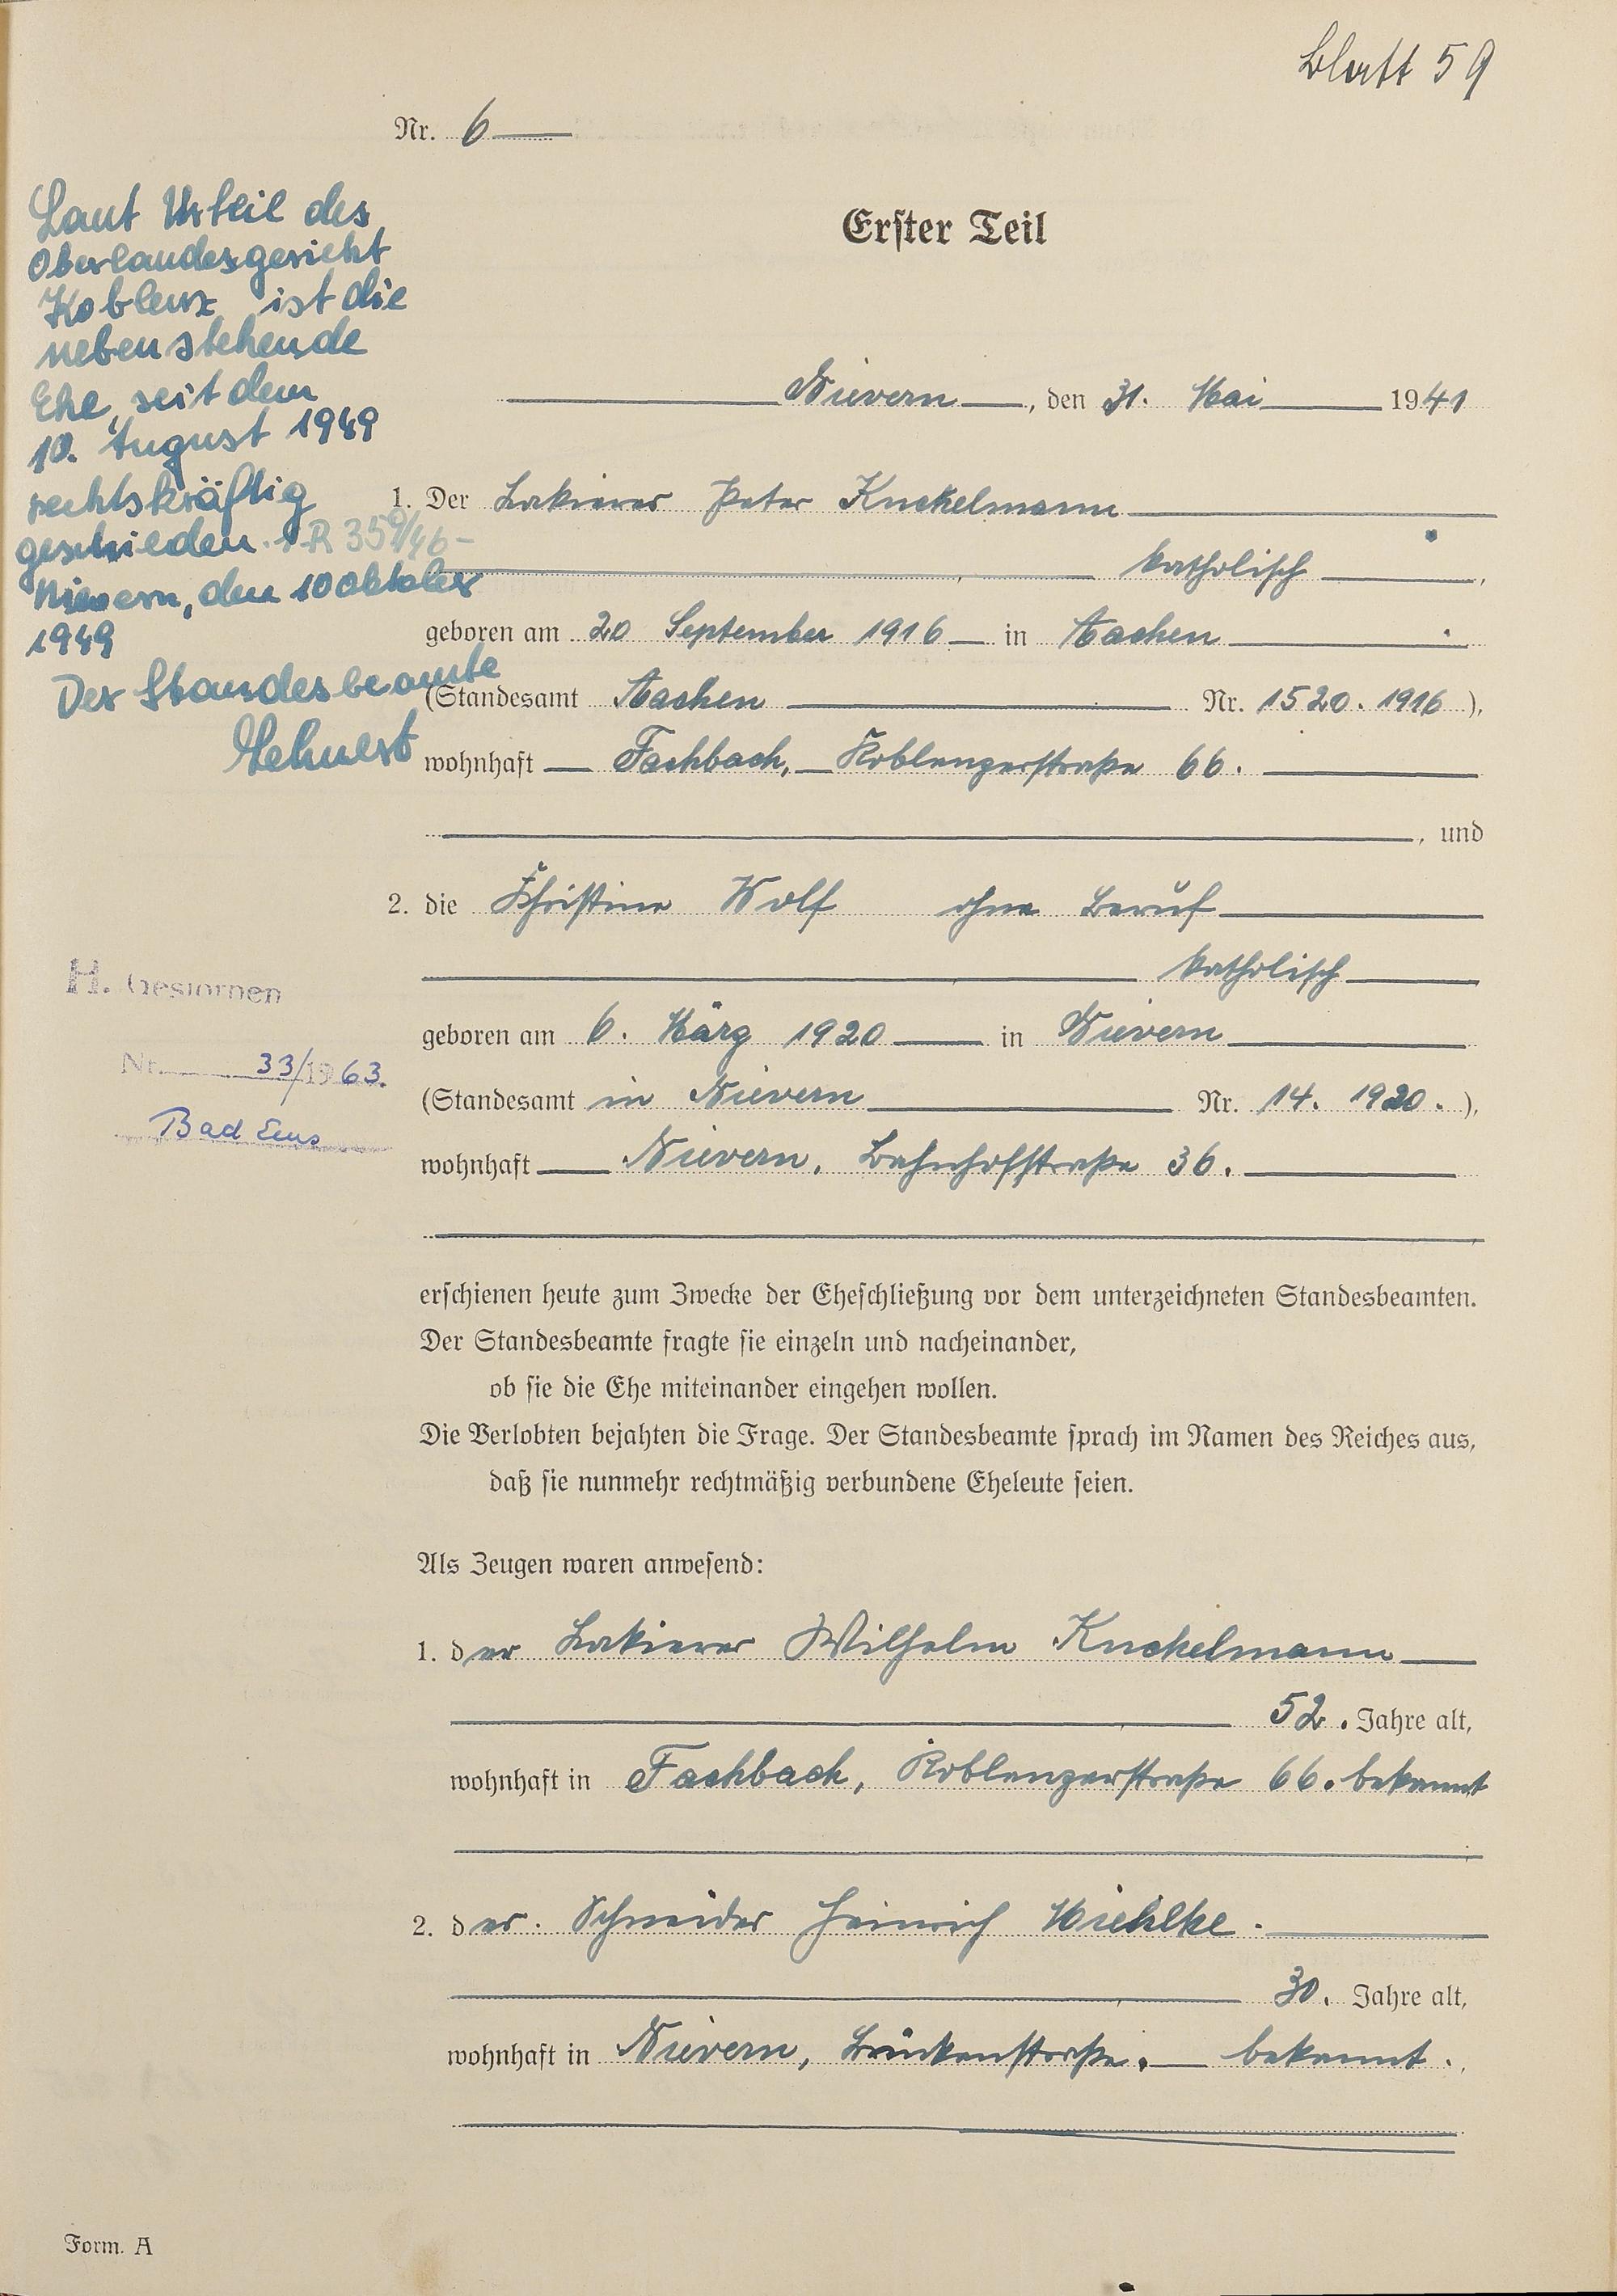 Blatt 59
Nr. 6
Laut Urteil des
Oberlandesgericht
Koblenz ist die
nebenstehende
Ehe, seit dem
10. August 1949
rechtskräftig
geschieden. R 359/46 -
Nievern, den 10 Oktober
1949
Der Standesbeamte
Erster Teil
Nievern, den 31. Mai 1941
1. Der Lakierer Peter Knckelmann
katholisch
geboren am 20 September 1916 in Aachen
(Standesamt Aachen Nr. 1520. 1916),
wohnhaft Fachbach, Koblenzerstraße 66.
, und
2. die Christine Wolf ohne Beruf
katholisch
geboren am 6. März 1920 in Nievern
(Standesamt in Nievern Nr. 14. 1920.),
wohnhaft Nievern, Bahnhofstraße 36.
H. Gestorben
Nr. 33/1963.
Bad Ems
erschienen heute zum Zwecke der Eheschließung vor dem unterzeichneten Standesbeamten.
Der Standesbeamte fragte sie einzeln und nacheinander,
ob sie die Ehe miteinander eingehen wollen.
Die Verlobten bejahten die Frage. Der Standesbeamte sprach im Namen des Reiches aus,
daß sie nunmehr rechtmäßig verbundene Eheleute seien.
Als Zeugen waren anwesend:
1. der Lakierer Wilhelm Knckelmann
52. Jahre alt,
wohnhaft in Fachbach, Koblenzerstraße 66. bekannt
2. der. Schneider Heinrich
30. Jahre alt,
wohnhaft in Nievern, Brückenstraße. bekannt.
Form. A